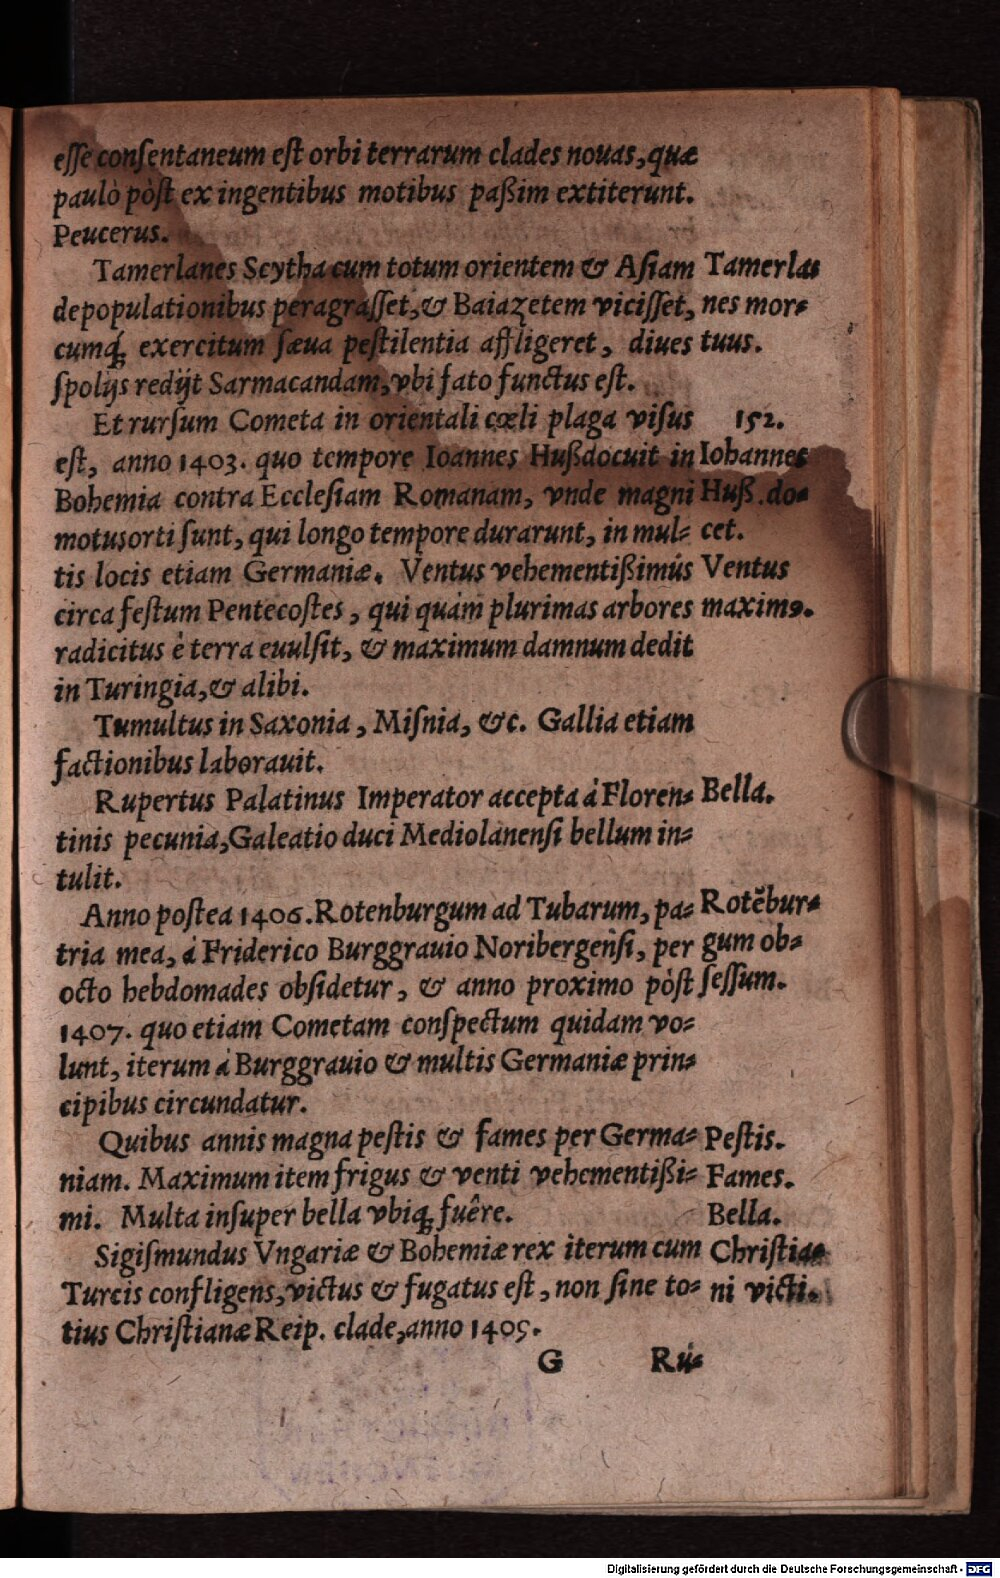 esse consentaneum est orbi terrarum clades nouas, quæ
paulò pòst ex ingentibus motibus paßim extiterunt.
Peucerus.
Tamerlanes Scytha cum totum orientem & Asiam Tamerla-
depopulationibus peragrasset, & Baiazetem vicisset, nes mor-
cumq́; exercitum sæua pestilentia affligeret, diues tuus.
spolijs redijt Sarmacandam, vbi fato functus est.
Et rursum Cometa in orientali cœli plaga visus 152.
est, anno 1403. quo tempore Ioannes Huß docuit in Iohannes
Bohemia contra Ecclesiam Romanam, vnde magni Huß. do-
motus orti sunt, qui longo tempore durarunt, in mul- cet.
tis locis etiam Germaniæ. Ventus vehementißimús Ventus
circa festum Pentecostes, qui quàm plurimas arbores maximꝰ.
radicitus è terra euulsit, & maximum damnum dedit
in Turingia, & alibi.
Tumultus in Saxonia, Misnia, &c. Gallia etiam
factionibus laborauit.
Rupertus Palatinus Imperator accepta á Floren- Bella.
tinis pecunia, Galeatio duci Mediolanensi bellum in-
tulit.
Anno postea 1406. Rotenburgum ad Tubarum, pa- Rotẽbur-
tria mea, á Friderico Burggrauio Noribergensi, per gum ob-
octo hebdomades obsidetur, & anno proximo pòst sessum.
1407. quo etiam Cometam conspectum quidam vo-
lunt, iterum á Burggrauio & multis Germaniæ prin-
cipibus circundatur.
Quibus annis magna pestis & fames per Germa- Pestis.
niam. Maximum item frigus & venti vehementißi- Fames.
mi. Multa insuper bella vbiq; fuêre. Bella.
Sigismundus Vngariæ & Bohemiæ rex iterum cum Christia-
Turcis confligens, victus & fugatus est, non sine to- ni victi.
tius Christianæ Reip. clade, anno 1409.
G Ru-
Digitalisierung gefördert durch die Deutsche Forschungsgemeinschaft - DFG